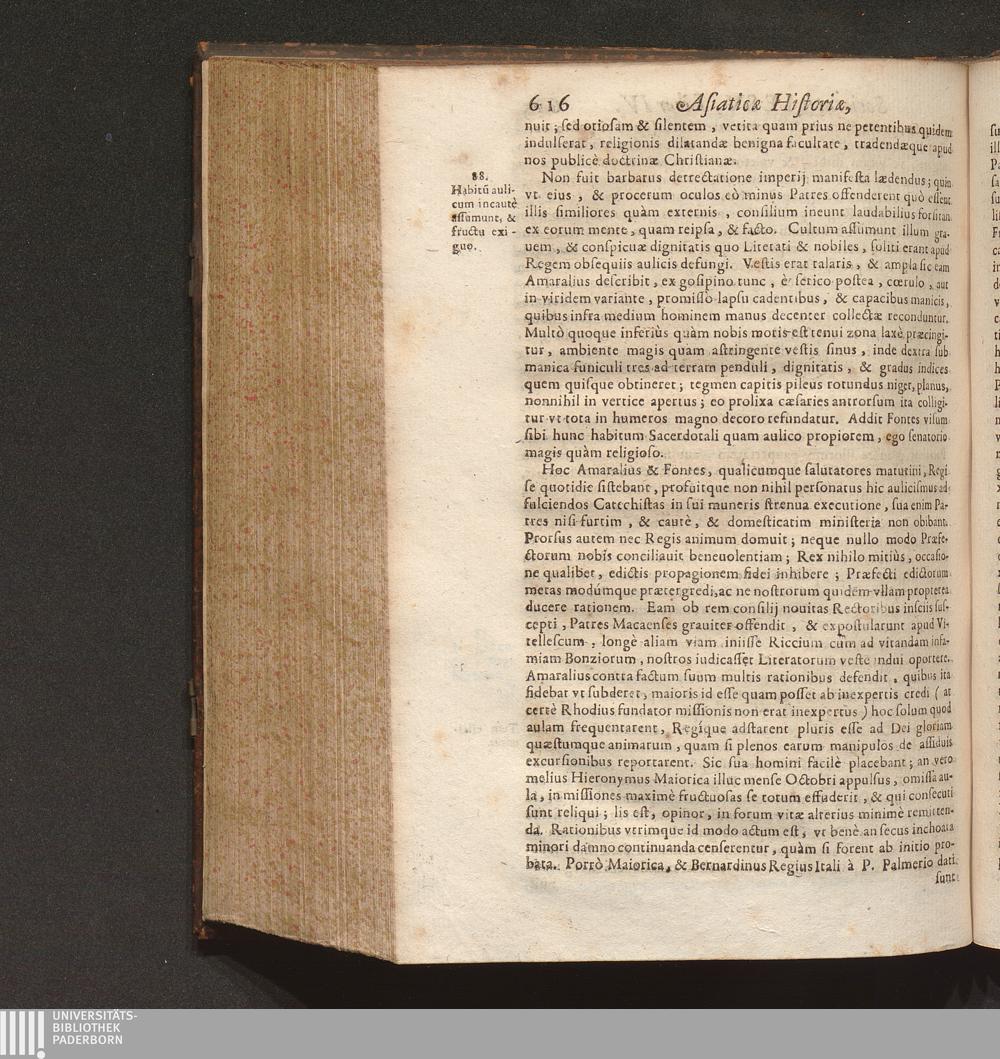 616 Asiaticæ Historiæ,
nuit; sed otiosam & silentem, vetita quam prius ne petentibus quidem
indulserat, religionis dilatandæ benigna facultate, tradendæque apud
nos publicè doctrinæ Christianæ.
88.
Habitū auli-
cum incautè
assumunt, &
fructu exi-
guo.
Non fuit barbarus detrectatione imperij manifesta lædendus; quin
vt eius, & procerum oculos eò minus Patres offenderent quò essent
illis similiores quàm externis, consilium ineunt laudabilius forsitan
ex eorum mente, quam reipsa, & facto. Cultum assumunt illum gra-
uem, & conspicuæ dignitatis quo Literati & nobiles, soliti erant apud
Regem obsequiis aulicis defungi. Vestis erat talaris, & ampla sic eam
Amaralius describit, ex gosipino tunc, è serico postea, cœrulo, aut
in viridem variante, promisso lapsu cadentibus, & capacibus manicis,
quibus infra medium hominem manus decenter collectæ reconduntur.
Multò quoque inferiùs quàm nobis moris est tenui zona laxè præcingi-
tur, ambiente magis quam astringente vestis sinus, inde dextra sub
manica funiculi tres ad terram penduli, dignitatis, & gradus indices
quem quisque obtineret; tegmen capitis pileus rotundus niger, planus,
nonnihil in vertice apertus; eo prolixa cæsaries antrorsum ita colligi-
tur vt tota in humeros magno decoro refundatur. Addit Fontes visum
sibi hunc habitum Sacerdotali quam aulico propiorem, ego senatorio
magis quàm religioso.
Hoc Amaralius & Fontes, qualicumque salutatores matutini, Regi
se quotidie sistebant, profuitque non nihil personatus hic aulicismus ad
fulciendos Catechistas in sui muneris strenua executione, sua enim Pa-
tres nisi furtim, & cautè, & domesticatim ministeria non obibant.
Prorsus autem nec Regis animum domuit; neque nullo modo Præfe-
ctorum nobis conciliauit beneuolentiam; Rex nihilo mitiùs, occasio-
ne qualibet, edictis propagionem fidei inhibere; Præfecti edictorum
metas modúmque prætergredi, ac ne nostrorum quidem vllam propterea
ducere rationem. Eam ob rem consilij nouitas Rectoribus insciis sus-
cepti, Patres Macaenses grauiter offendit, & expostularunt apud Vi-
tellescum, longè aliam viam iniisse Riccium cùm ad vitandam infa-
miam Bonziorum, nostros iudicasset Literatorum veste indui oportere.
Amaralius contra factum suum multis rationibus defendit, quibus ita
fidebat vt subderet, maioris id esse quam posset ab inexpertis credi (at
certè Rhodius fundator missionis non erat inexpertus) hoc solum quod
aulam frequentarent, Regíque adstarent pluris esse ad Dei gloriam
quæstumque animarum, quam si plenos earum manipulos de assiduis
excursionibus reportarent. Sic sua homini facilè placebant; an vero
melius Hieronymus Maiorica illuc mense Octobri appulsus, omissa au-
la, in missiones maximè fructuosas se totum effuderit, & qui consecuti
sunt reliqui; lis est, opinor, in forum vitæ alterius minimè remitten-
da. Rationibus vtrimque id modo actum est, vt benè an secus inchoata
minori damno continuanda censerentur, quàm si forent ab initio pro-
bata. Porrò Maiorica, & Bernardinus Regius Itali à P. Palmerio dati
sunt
UNIVERSITÄTS-
BIBLIOTHEK
PADERBORN